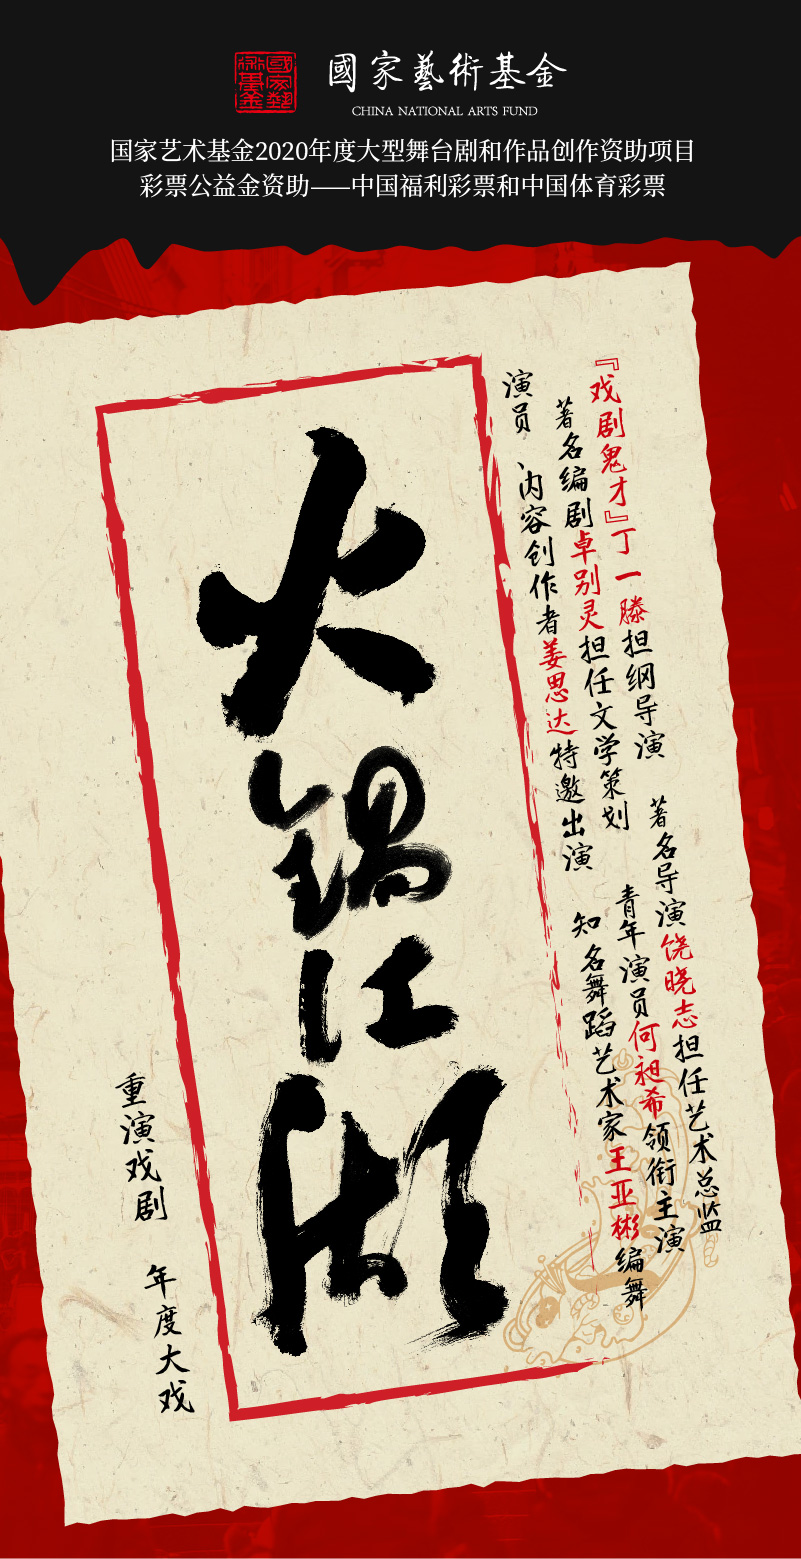 國家藝術基金
國家藝術基金
CHINA NATIONAL ARTS FUND
国家艺术基金2020年度大型舞台剧和作品创作资助项目
彩票公益金资助——中国福利彩票和中国体育彩票
『戏剧鬼才』丁一滕担纲导演 著名导演饶晓志担任艺术总监
著名编剧卓别灵担任文学策划 青年演员何昶希领衔主演
演员 内容创作者姜思达特邀出演 知名舞蹈艺术家王亚彬编舞
火锅江湖
重演戏剧 年度大戏